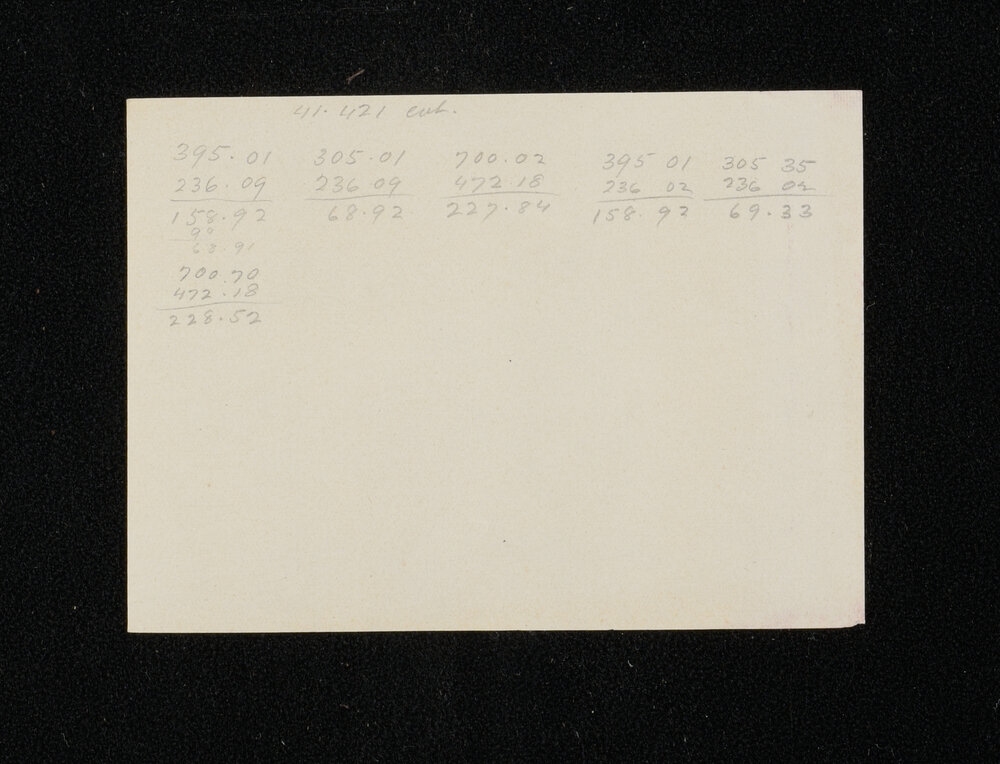 41.421 cut.
395.01 305.01 700.02 395 01 305 35
236.09 236 09 472 18 236 02 236 02
158.92 68.92 227.84 158.92 69.33
90
68.91
700.70
472.18
228.52